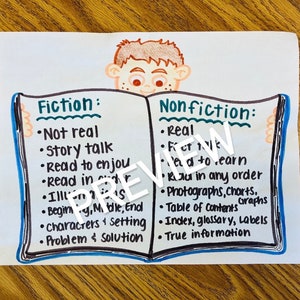 Fiction:
• Not real
• Story talk
• Read to enjoy
• Read in order
• Illustrations
• Beginning, Middle, End
• Characters & Setting
• Problem & Solution
Nonfiction:
• Real
• Read to learn
• Read in any order
• Photographs, Charts,
Graphs
• Table of Contents
• Index, glossary, Labels
• True information
PREVIEW